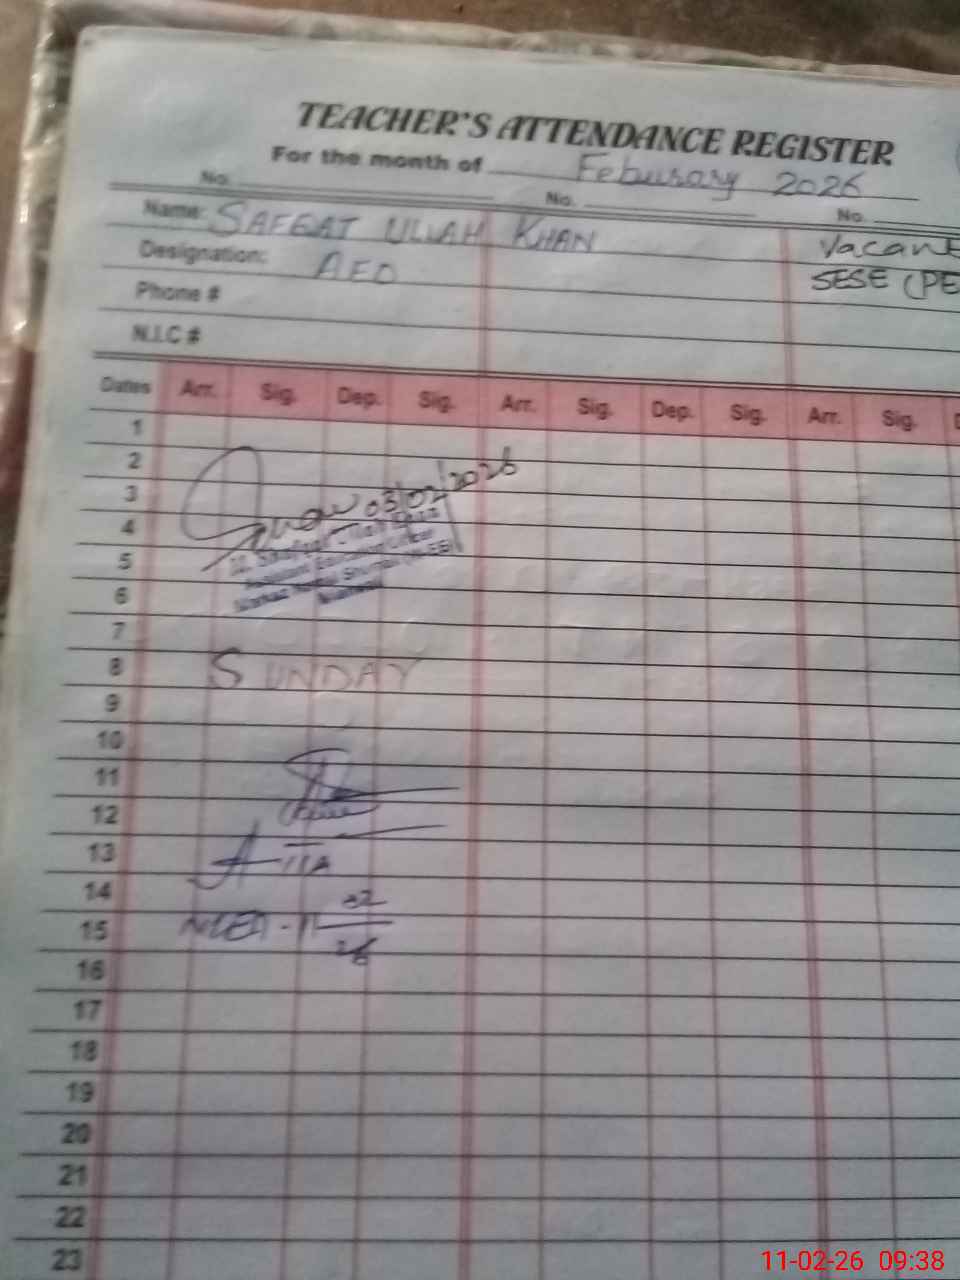 TEACHER'S ATTENDANCE REGISTER
For the month of Feburaray 2026
No. No. No.
Name: SAFEAT ULLAH KHAN Vacant
Designation: AEO SESE (PE
Phone #
N.I.C #
Dates Arr. Sig. Dep. Sig. Arr. Sig. Dep. Sig. Arr. Sig. D
1
2
3 03/02/2026
4
5
6
7
8 SUNDAY
9
10
11
12
13
14
15 -11 02 26
16
17
18
19
20
21
22
23
11-02-26 09:38